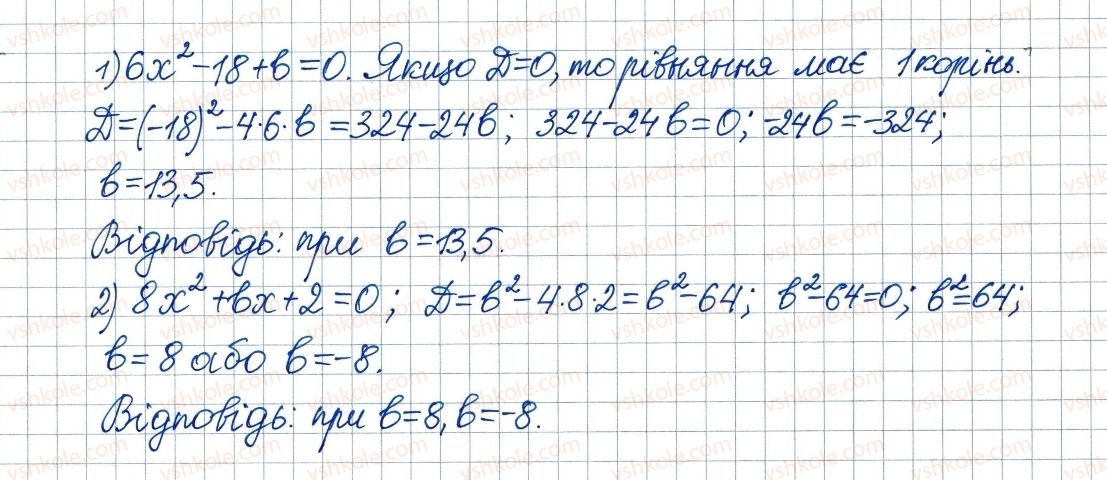 1) 6x² - 18 + в = 0. Якщо D = 0, то рівняння має 1 корінь.
D = (-18)² - 4·6·в = 324 - 24в; 324 - 24в = 0; -24в = -324;
в = 13,5.
Відповідь: при в = 13,5.
2) 8x² + вx + 2 = 0; D = в² - 4·8·2 = в² - 64; в² - 64 = 0; в² = 64;
в = 8 або в = -8.
Відповідь: при в = 8, в = -8.